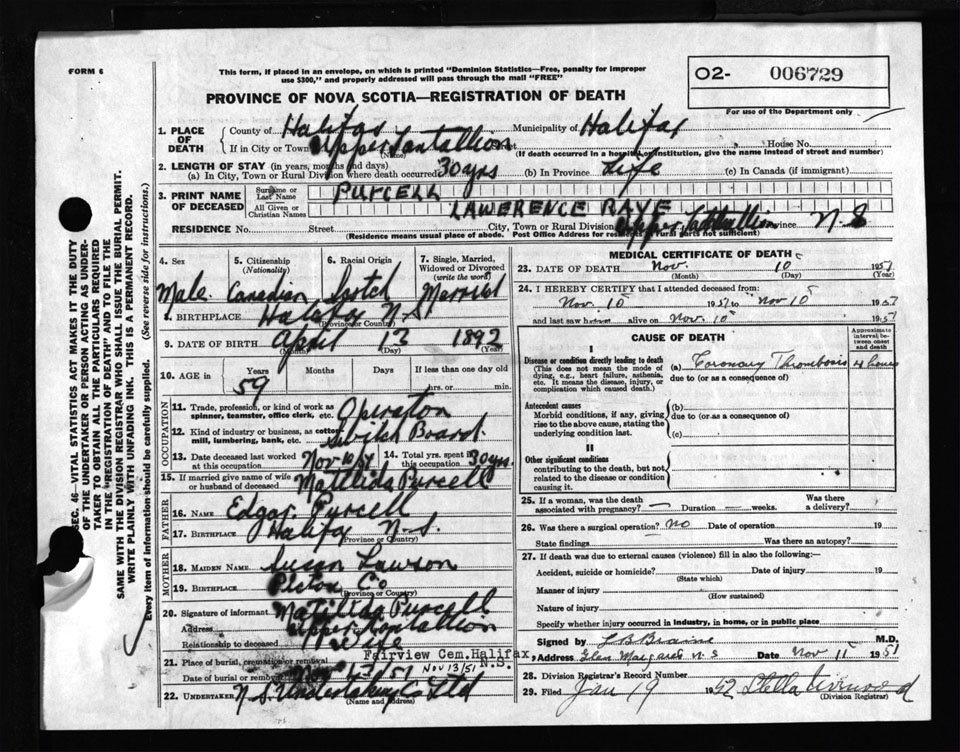 FORM 6
This form, if placed in an envelope, on which is printed "Dominion Statistics—Free, penalty for improper
use $300," and properly addressed will pass through the mail "FREE"
O2- 006729
For use of the Department only
PROVINCE OF NOVA SCOTIA—REGISTRATION OF DEATH
SEC. 46—VITAL STATISTICS ACT MAKES IT THE DUTY
OF THE UNDERTAKER OR PERSON ACTING AS UNDER-
TAKER TO OBTAIN ALL THE PARTICULARS REQUIRED
IN THE "REGISTRATION OF DEATH" AND TO FILE THE
SAME WITH THE DIVISION REGISTRAR WHO SHALL ISSUE THE BURIAL PERMIT.
WRITE PLAINLY WITH UNFADING INK. THIS IS A PERMANENT RECORD.
Every item of information should be carefully supplied. (See reverse side for instructions.)
1. PLACE OF DEATH County of Halifax Municipality of Halifax
If in City or Town Upper Tantallion Street House No.
(Name) (If death occurred in a hospital or institution, give the name instead of street and number)
2. LENGTH OF STAY (in years, months and days)
(a) In City, Town or Rural Division where death occurred 30 yrs (b) In Province Life (c) In Canada (if immigrant)
3. PRINT NAME OF DECEASED Surname or Last Name PURCELL
All Given or Christian Names LAWERENCE RAYE
RESIDENCE No. Street City, Town or Rural Division Upper Province N S
(Residence means usual place of abode. Post Office Address for residents of rural parts not sufficient)
4. Sex Male
5. Citizenship (Nationality) Canadian
6. Racial Origin Scotch
7. Single, Married, Widowed or Divorced (write the word) Married
8. BIRTHPLACE Halifax N.S.
(Province or Country)
9. DATE OF BIRTH April 13 1892
(Month) (Day) (Year)
10. AGE in Years Months Days If less than one day old
59 hrs. or min.
OCCUPATION
11. Trade, profession, or kind of work as spinner, teamster, office clerk, etc. Operation
12. Kind of industry or business, as cotton mill, lumbering, bank, etc. Switch Board
13. Date deceased last worked at this occupation Nov 10/51 14. Total yrs. spent in this occupation 30 yrs.
15. If married give name of wife or husband of deceased Matilida Purcell
FATHER
16. Name Edgar Purcell
17. Birthplace Halifax N.S.
(Province or Country)
MOTHER
18. Maiden Name Susan Lawson
19. Birthplace Picton Co
(Province or Country)
20. Signature of informant Matilida Purcell
Address Upper
Relationship to deceased Wife
21. Place of burial, cremation or removal Fairview Cem. Halifax, N.S.
Date of burial or removal Nov 13/51 NOV 13/51
22. UNDERTAKER N.S. Undertaking Co Ltd
(Name and address)
MEDICAL CERTIFICATE OF DEATH
23. DATE OF DEATH Nov. 10 1951
(Month) (Day) (Year)
24. I HEREBY CERTIFY that I attended deceased from
Nov. 10 1951 to Nov 10 1951
and last saw him alive on Nov. 10 1951
CAUSE OF DEATH
Approximate interval between onset and death
I
Disease or condition directly leading to death
(This does not mean the mode of dying, e.g., heart failure, asthenia, etc. It means the disease, injury, or complication which caused death.)
(a) Coronary Thrombosis 4 hours
due to (or as a consequence of)
Antecedent causes
Morbid conditions, if any, giving rise to the above cause, stating the underlying condition last.
(b)
due to (or as a consequence of)
(c)
II
Other significant conditions
contributing to the death, but not related to the disease or condition causing it.
25. If a woman, was the death associated with pregnancy? — Duration — weeks. Was there a delivery?
26. Was there surgical operation? No Date of operation 19
State findings Was there an autopsy?
27. If death was due to external causes (violence) fill in also the following:—
Accident, suicide or homicide? Date of injury 19
(State which)
Manner of injury
(How sustained)
Nature of injury
Specify whether injury occurred in industry, in home, or in public place
Signed by M.D.
Address Glen Margaret N S Date Nov 11 1951
28. Division Registrar's Record Number
29. Filed Jan 19 1952 Stella
(Division Registrar)